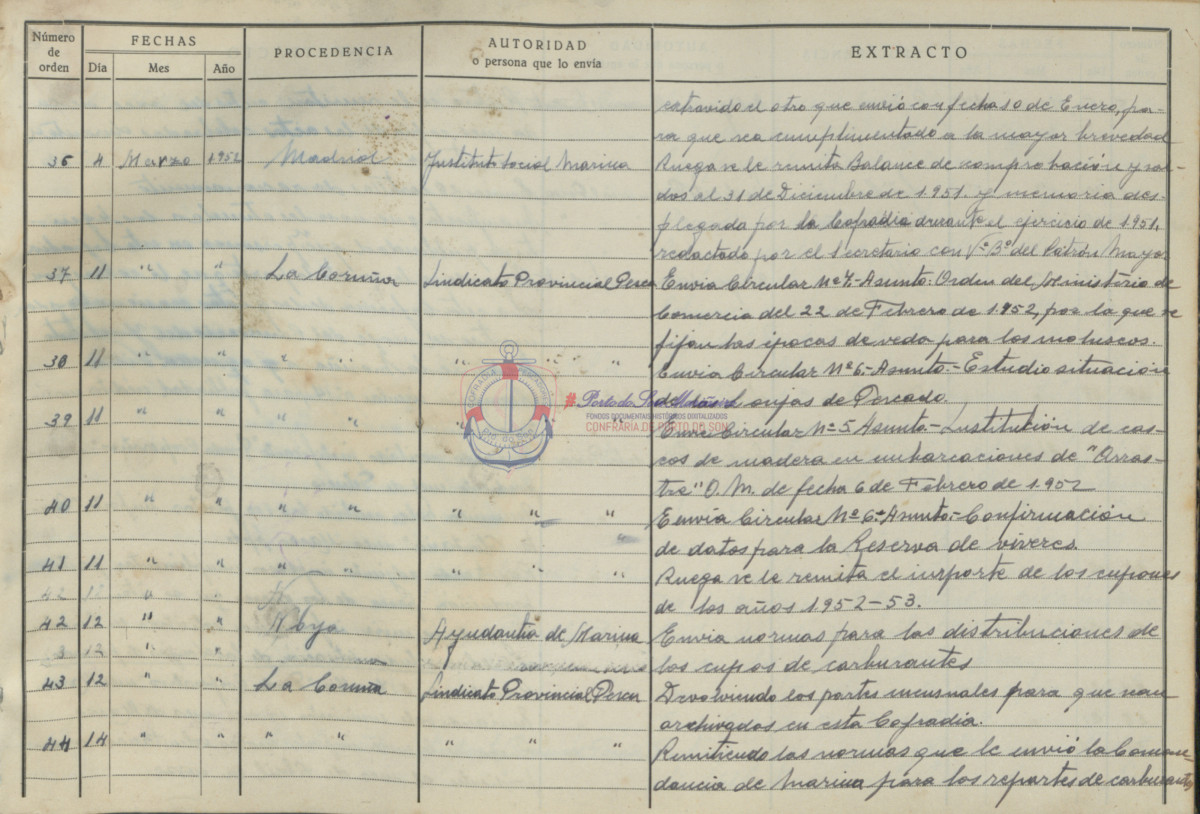 Número de orden FECHAS PROCEDENCIA AUTORIDAD o persona que lo envía EXTRACTO
Día Mes Año
extravido el otro que envió con fecha 10 de Enero, pa-
ra que sea cumplimentado a la mayor brevedad
36 4 Marzo 1.952 Madrid Instituto Social Marina Ruega se le remita Balance de comprobación y sal-
dos al 31 de Diciembre de 1.951. y memoria des-
plegada por la Cofradia durante el ejercicio de 1.951,
redactado por el Secretario con Vº Bº del Patrón Mayor
37 11 " " La Coruña Sindicato Provincial Pesca Envia Circular Nº 7.-Asunto: Orden del Ministerio de
Comercia del 22 de Febrero de 1.952, por la que se
fijan las épocas de veda para los moluscos.
38 11 " " " " " " " Envia Circular Nº 6.-Asunto.-Estudio situación
de las Lonjas de Pescado.
39 11 " " " " " Envia Circular Nº 5 Asunto.- Sustitución de cas-
cos de madera en embarcaciones de "Arras-
tre" O.M. de fecha 6 de Febrero de 1.952
40 11 " " " " " " " Envia Circular Nº 6.-Asunto.-Confirmación
de datos para la Reserva de víveres.
41 11 " " " " " " " Ruega se le remita el importe de los cupones
42 12 " "
de los años 1.952-53.
42 12 " " Noya Ayudantia de Marina Envia normas para las distribuciones de
3 12 " "
los cupos de carburantes
43 12 " " La Coruña Sindicato Provincial Pesca Devolviendo los partes mensuales para que sean
archivados en esta Cofradia.
44 14 " " " " " " " Remitiendo las normas que le envió la Coman-
dancia de Marina para los repartes de carburantes
CONFRARÍA PESCADORES
PTO. DO SON
#Porto do Son
FONDOS DOCUMENTAIS HISTÓRICOS DIGITALIZADOS
CONFRARÍA DE PORTO DO SON